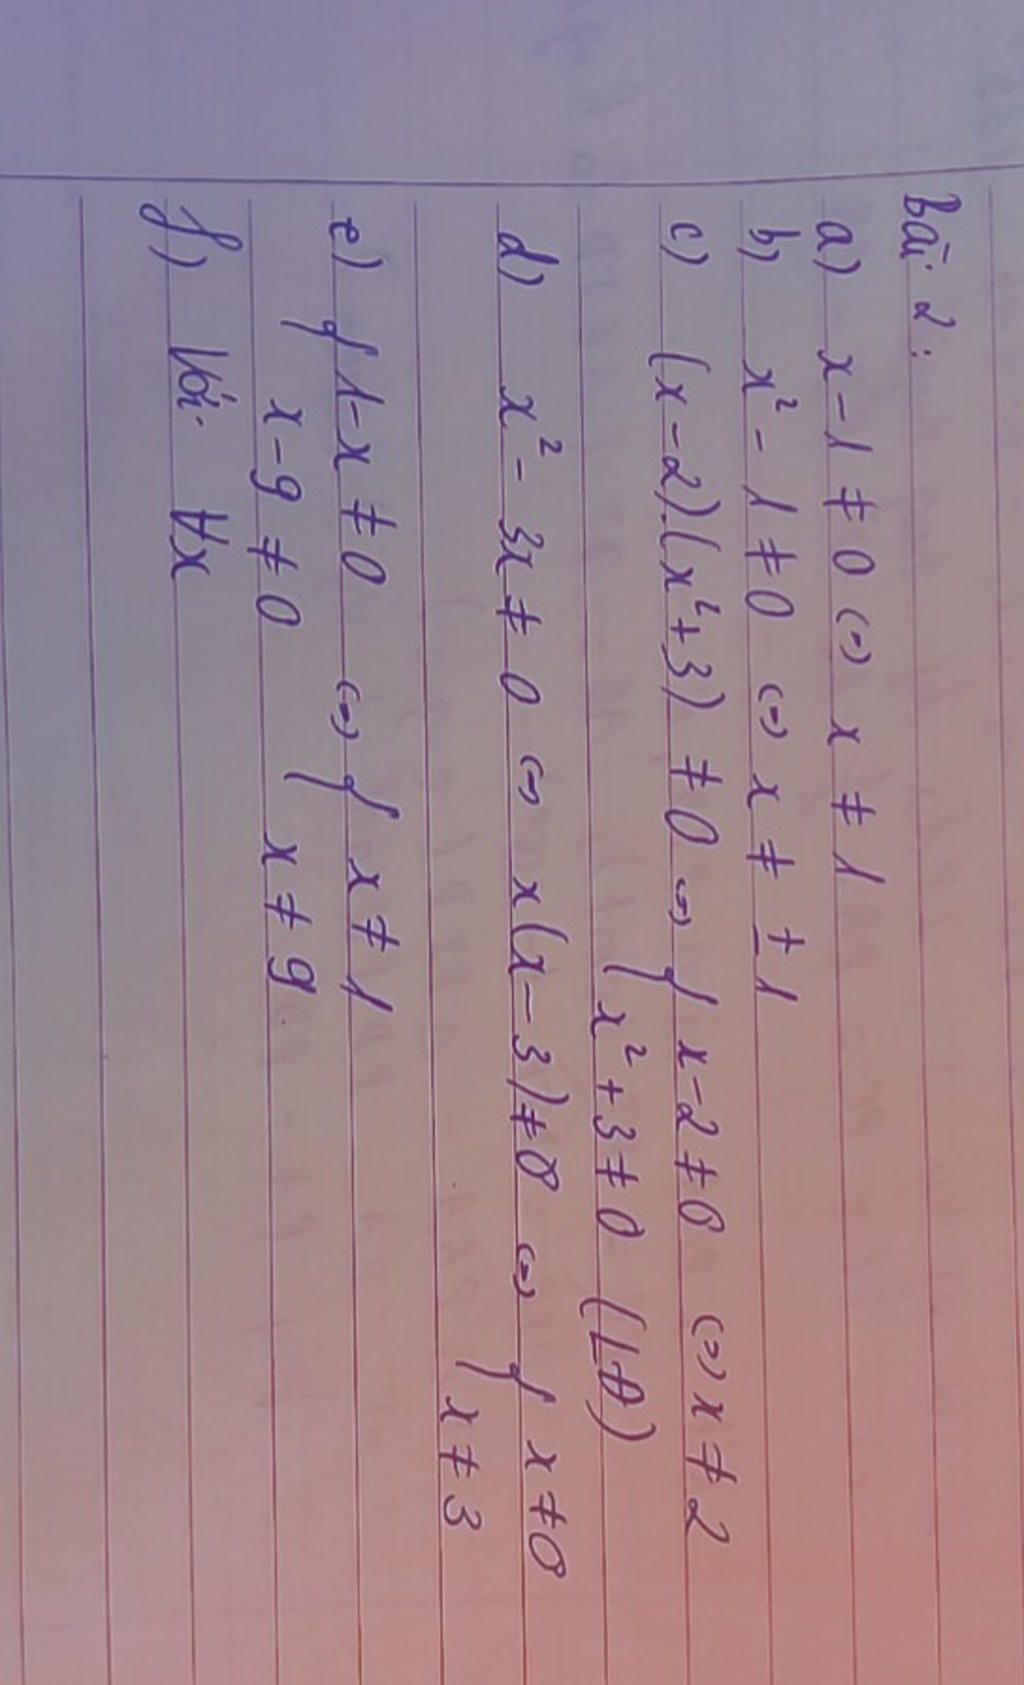 Bài 2:
a) x - 1 ≠ 0 (=) x ≠ 1
b) x² - 1 ≠ 0 (=) x ≠ ± 1
c) (x - 2).(x² + 3) ≠ 0 (=) { x - 2 ≠ 0 (=) x ≠ 2
x² + 3 ≠ 0 (LĐ)
d) x² - 3x ≠ 0 (=) x(x - 3) ≠ 0 (=) { x ≠ 0
x ≠ 3
e) { 1 - x ≠ 0 (=) { x ≠ 1
x - 9 ≠ 0 x ≠ 9
f) Với ∀x